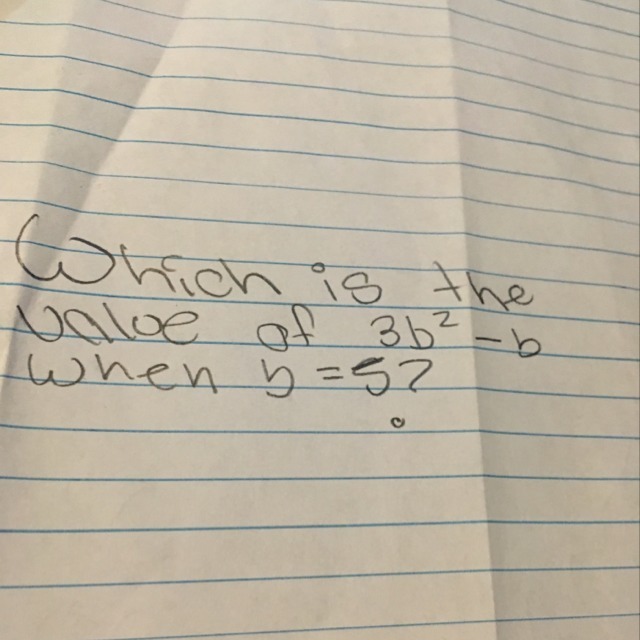 Which is the
value of 3b² - b
when b = 5?